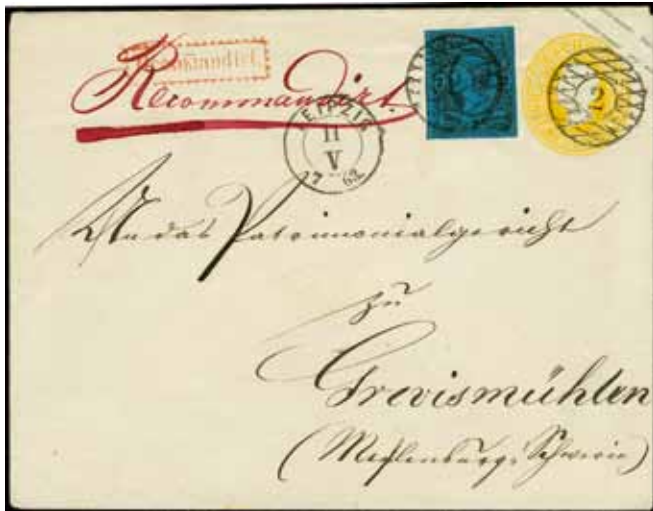 Recommandirt
Recommandirt
LEIPZIG
11
V
7 62
2
An das Patrimonialgericht
zu
Grevismühlen
(Meklenburg: Schwerin)